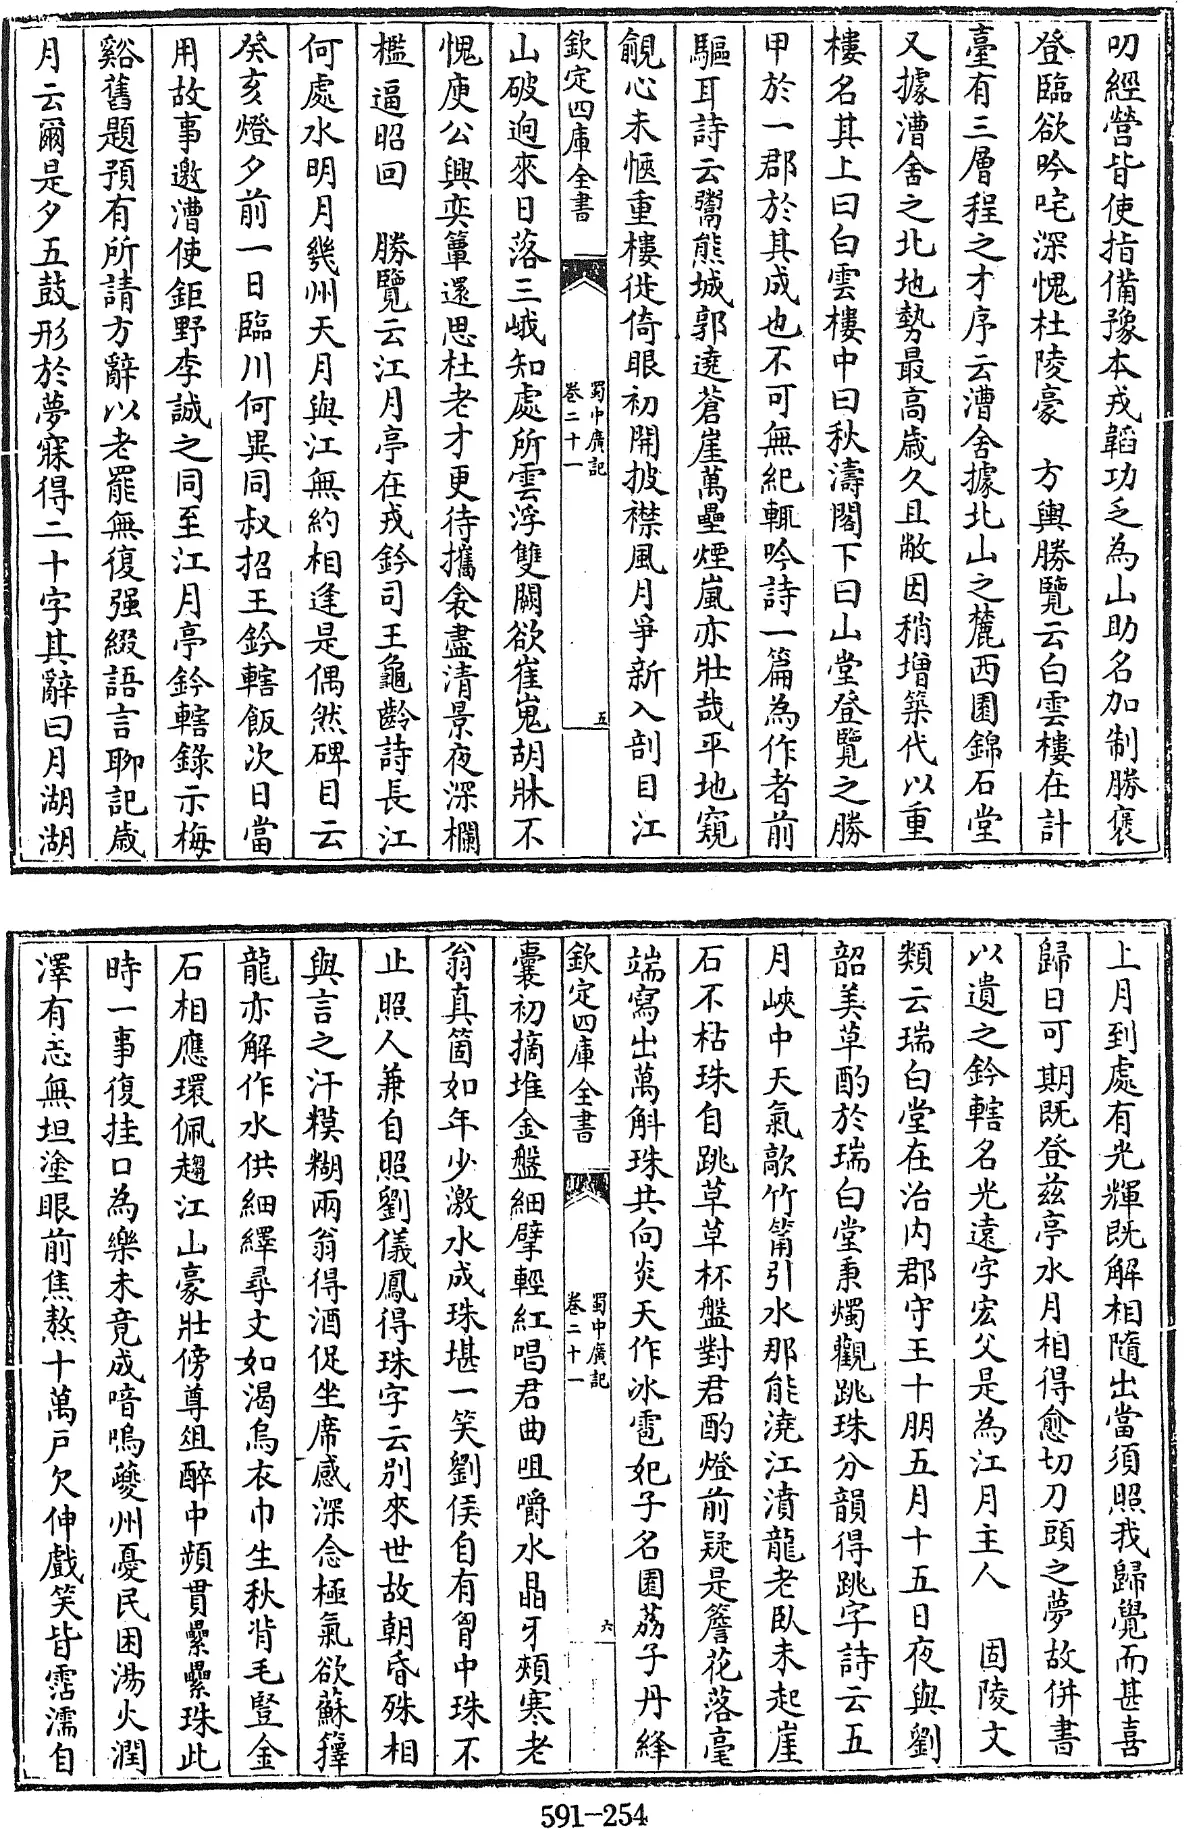 叨經營皆使指備豫本戎韜功乏為山助名加制勝褒
登臨欲吟咤深愧杜陵豪　方輿勝覽云白雲樓在計
臺有三層程之才序云漕舍據北山之麓西園錦石堂
又據漕舍之北地勢最高歲久且敝因稍增築代以重
樓名其上曰白雲樓中曰秋濤閣下曰山堂登覽之勝
甲於一郡於其成也不可無紀輒吟詩一篇為作者前
驅耳詩云鬻熊城郭遶蒼崖萬壘煙嵐亦壯哉平地窺
覦心未愜重樓徙倚眼初開披襟風月爭新入剖目江
欽定四庫全書
蜀中廣記
卷二十一
五
山破逈來日落三峨知處所雲浮雙闕欲崔嵬胡牀不
愧庾公興奕簟還思杜老才更待攜衾盡清景夜深欄
檻逼昭回　勝覽云江月亭在戎鈐司王龜齡詩長江
何處水明月幾州天月與江無約相逢是偶然碑目云
癸亥燈夕前一日臨川何異同叔招王鈐轄飯次日當
用故事邀漕使鉅野李誠之同至江月亭鈐轄錄示梅
谿舊題預有所請方辭以老罷無復强綴語言聊記歲
月云爾是夕五鼓形於夢寐得二十字其辭曰月湖湖
上月到處有光輝既解相隨出當須照我歸覺而甚喜
歸日可期既登兹亭水月相得愈切刀頭之夢故併書
以遺之鈐轄名光遠字宏父是為江月主人　固陵文
類云瑞白堂在治内郡守王十朋五月十五日夜與劉
韶美草酌於瑞白堂秉燭觀跳珠分韻得跳字詩云五
月峽中天氣歊竹筩引水那能澆江濆龍老臥未起崖
石不枯珠自跳草草杯盤對君酌燈前疑是簷花落毫
端寫出萬斛珠共向炎天作冰雹妃子名園荔子丹絳
欽定四庫全書
蜀中廣記
卷二十一
六
囊初摘堆金盤細擘輕紅唱君曲咀嚼水晶牙頰寒老
翁真箇如年少激水成珠堪一笑劉侯自有胷中珠不
止照人兼自照劉儀鳳得珠字云别來世故朝昏殊相
與言之汗糢糊兩翁得酒促坐席感深念極氣欲蘇籜
龍亦解作水供細繹尋丈如渴烏衣巾生秋背毛豎金
石相應環佩趨江山豪壯傍尊俎醉中頻貫纍纍珠此
時一事復挂口為樂未竟成喑嗚夔州憂民困湯火潤
澤有志無坦塗眼前焦熬十萬戸欠伸戲笑皆霑濡自
591-254